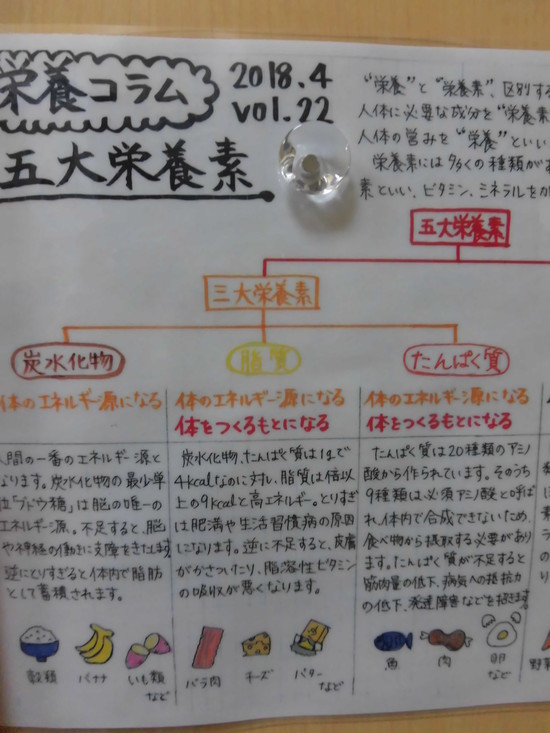 栄養コラム
2018.4
vol.22
五大栄養素
"栄養"と"栄養素"、区別する
人体に必要な成分を"栄養素
人体の営みを"栄養"といい
栄養素には多くの種類がお
素といい、ビタミン、ミネラルをか
五大栄養素
三大栄養素
炭水化物
体のエネルギー源になる
人間の一番のエネルギー源と
なります。炭水化物の最少単
は「ブドウ糖」は脳の唯一の
エネルギー源。不足すると、脳
や神経の働きに支障をきたします。
逆にとりすぎると体内で脂肪
として蓄積されます。
穀類
バナナ
いも類
など
脂質
体のエネルギー源になる
体をつくるもとになる
炭水化物、たんぱく質は1gで
4kcalなのに対し、脂質は倍以上
の9kcalと高エネルギー。とりすぎ
は肥満や生活習慣病の原因
になります。逆に不足すると、皮膚
がかさついたり、脂溶性ビタミン
の吸収が悪くなります。
バラ肉
チーズ
バター
など
たんぱく質
体のエネルギー源になる
体をつくるもとになる
たんぱく質は20種類のアミノ
酸から作られています。そのうち
9種類は必須アミノ酸と呼ば
れ、体内で合成できないため、
食べ物から摂取する必要があり
ます。たんぱく質が不足すると
筋肉量の低下、病気への抵抗力
の低下、発達障害などを招きます。
魚
肉
卵
など
野菜